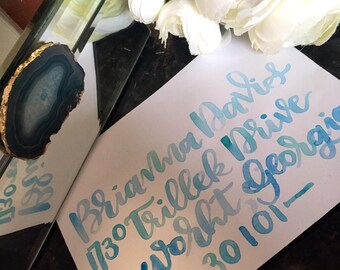 Brianna Davis
1730 Trillek Drive
Worht Georgia
30101